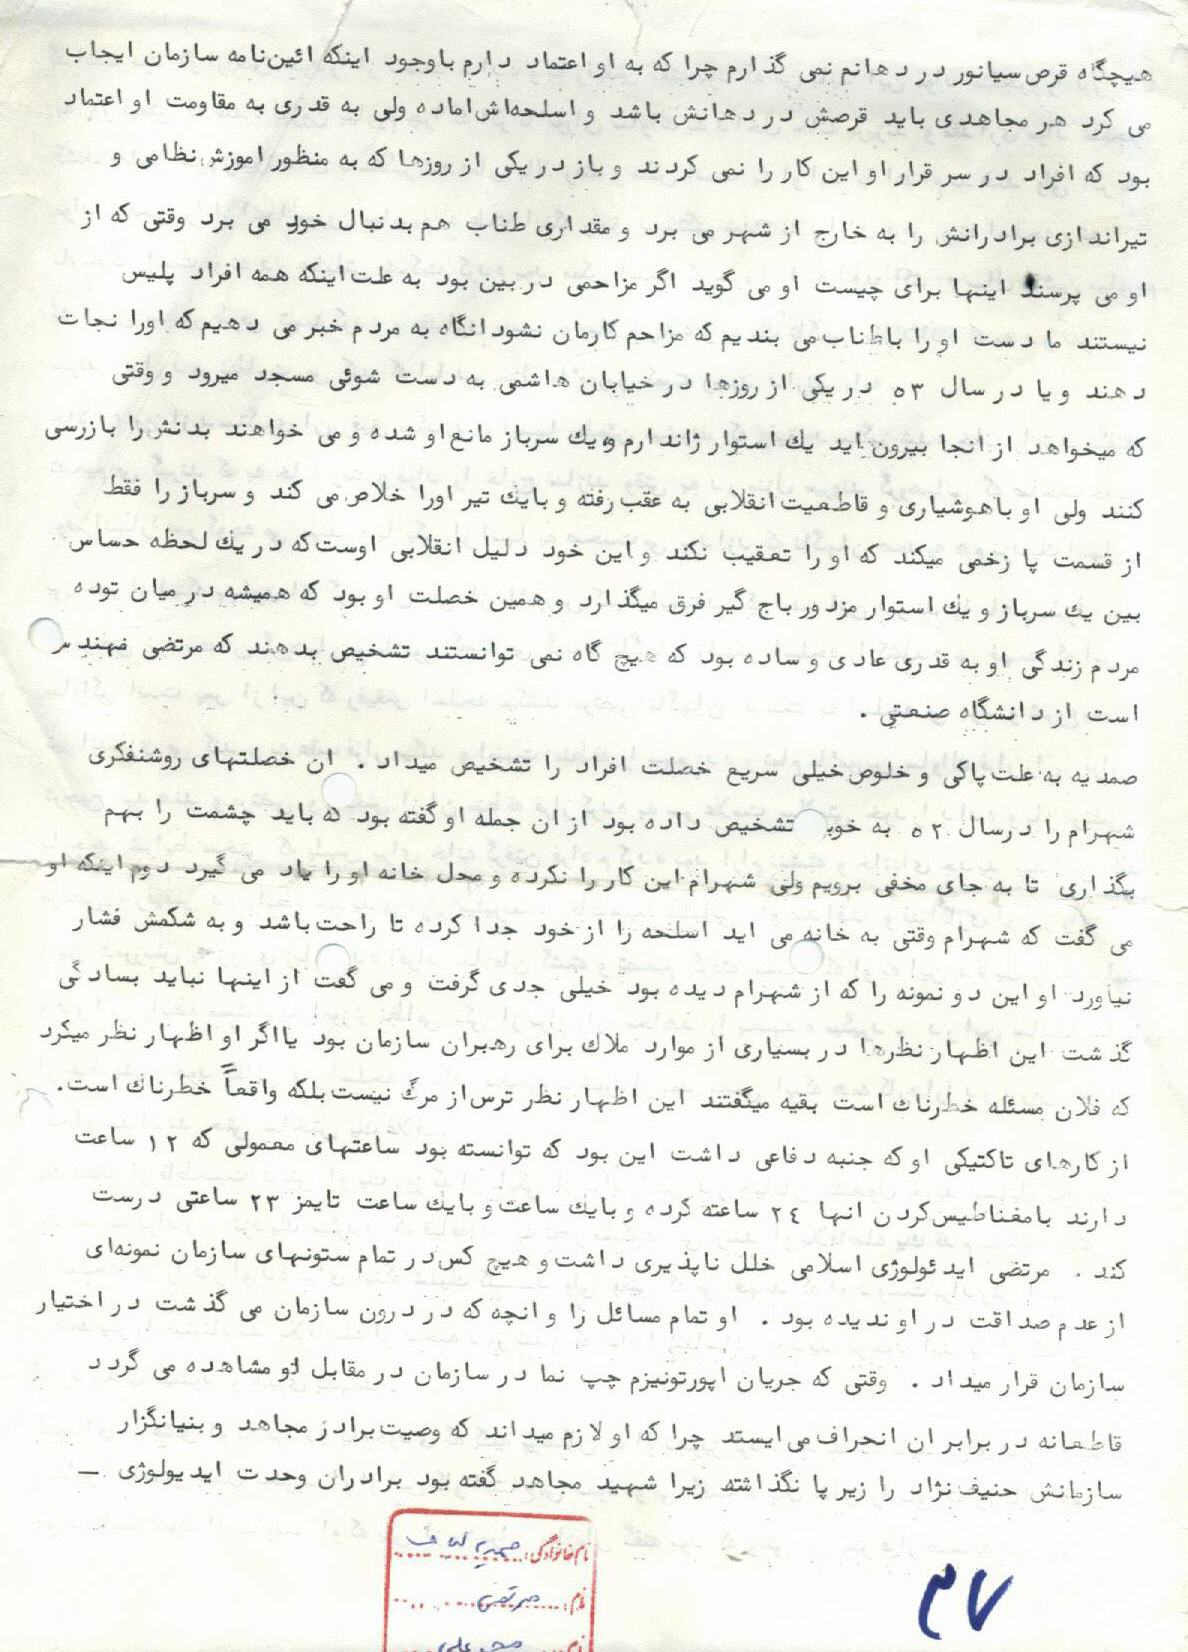 هیچگاه قرص سیانور در دهانم نمی گذارم چرا که به او اعتماد دارم باوجود اینکه ائین‌نامه سازمان ایجاب
می کرد هر مجاهدی باید قرصش در دهانش باشد و اسلحه‌اش اماده ولی به قدری به مقاومت او اعتماد
بود که افراد در سر قرار او این کار را نمی کردند و باز در یکی از روزها که به منظور اموزش نظامی و
تیراندازی برادرانش را به خارج از شهر می برد و مقداری طناب هم بدنبال خود می برد وقتی که از
او می پرسند اینها برای چیست او می گوید اگر مزاحمی در بین بود به علت اینکه همه افراد پلیس
نیستند ما دست او را با طناب می بندیم که مزاحم کارمان نشود انگاه به مردم خبر می دهیم که اورا نجات
دهند و یا در سال ۵۳ در یکی از روزها در خیابان هاشمی به دست شوئی مسجد میرود و وقتی
که میخواهد از انجا بیرون اید یك استوار ژاندارم و یك سرباز مانع او شده و می خواهند بدنش را بازرسی
کنند ولی او با هوشیاری و قاطعیت انقلابی به عقب رفته و با یك تیر اورا خلاص می کند و سرباز را فقط
از قسمت پا زخمی میکند که او را تعقیب نکند و این خود دلیل انقلابی اوست که در یك لحظه حساس
بین یك سرباز و یك استوار مزدور باج گیر فرق میگذارد و همین خصلت او بود که همیشه در میان توده
مردم زندگی او به قدری عادی و ساده بود که هیچ گاه نمی توانستند تشخیص بدهند که مرتضی مهندس
است از دانشگاه صنعتی .
صمدیه به علت پاکی و خلوص خیلی سریع خصلت افراد را تشخیص میداد . ان خصلتهای روشنفکری
شهرام را درسال ۵۲ به خوبی تشخیص داده بود از ان جمله او گفته بود که باید چشمت را بهم
بگذاری تا به جای مخفی برویم ولی شهرام این کار را نکرده و محل خانه او را یاد می گیرد دوم اینکه او
می گفت که شهرام وقتی به خانه می اید اسلحه را از خود جدا کرده تا راحت باشد و به شکمش فشار
نیاورد او این دو نمونه را که از شهرام دیده بود خیلی جدی گرفت و می گفت از اینها نباید بسادگی
گذشت این اظهار نظرها در بسیاری از موارد ملاك برای رهبران سازمان بود یا اگر او اظهار نظر میکرد
که فلان مسئله خطرناك است بقیه میگفتند این اظهار نظر ترس از مرگ نیست بلکه واقعاً خطرناك است.
از کارهای تاکتیکی او که جنبه دفاعی داشت این بود که توانسته بود ساعتهای معمولی که ۱۲ ساعت
دارند با مغناطیس کردن انها ۲٤ ساعته کرده و با یك ساعت و با یك ساعت تایمز ۲۳ ساعتی درست
کند . مرتضی ایدئولوژی اسلامی خلل ناپذیری داشت و هیچ کس در تمام ستونهای سازمان نمونه‌ای
از عدم صداقت در او ندیده بود . او تمام مسائل را و انچه که در درون سازمان می گذشت در اختیار
سازمان قرار میداد . وقتی که جریان اپورتونیزم چپ نما در سازمان در مقابل او مشاهده می گردد
قاطعانه در برابر ان انحراف می ایستد چرا که او لازم میداند که وصیت برادر مجاهد و بنیانگزار
سازمانش حنیف نژاد را زیر پا نگذاشته زیرا شهید مجاهد گفته بود برادران وحدت ایدیولوژی –
نام خانوادگی: صمدیه لباف
نام: مرتضی
محمدعلی
۳۷